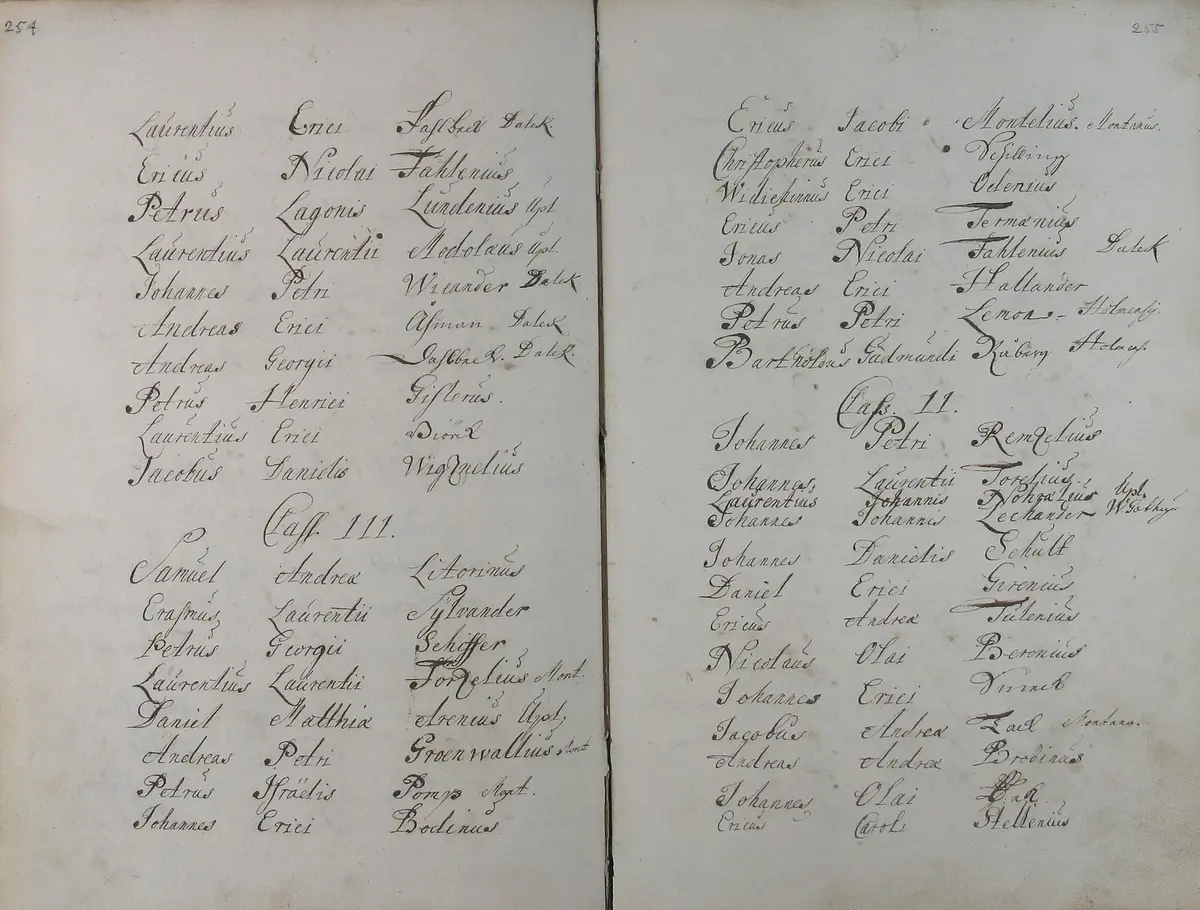 254
Laurentius Erici Dalek
Ericus Nicolai Fahlenius
Petrus Lagonis Lundenius Upl
Laurentius Laurentii Upl
Johannes Petri Wicander Dalek
Andreas Erici Åsman Dalek
Andreas Georgii Dalek.
Petrus Henrici Gislerus.
Laurentius Erici Biörk
Jacobus Danielis
Class. III.
Samuel Andreæ Litorinus
Erasmus Laurentii Sylvander
Petrus Georgii Scheffer
Laurentius Laurentii Mont.
Daniel Matthiæ Arenius Upl,
Andreas Petri Groenwallius Mont
Petrus Israëlis Pomp Mont.
Johannes Erici Bodinus
255
Ericus Jacobi Montelius. Montanus.
Christopherus Erici
Erici Odenius
Ericus Petri Termænius
Jonas Nicolai Fahlenius Dalek
Andreas Erici Hallander
Petrus Petri Lemon
Bartholdus Gudmundi
Class. II.
Johannes Petri
Johannes, Laurentii Torelius
Laurentius Johannis Upl.
Johannes Johannis Zechander
Johannes Danielis Schult
Daniel Erici Girenius
Ericus Andreæ
Nicolaus Olai Beronius
Johannes Erici
Jacobus Andreæ Montanus.
Andreas Andreæ Brodinus
Johannes Olai
Ericus Caroli Stellenius